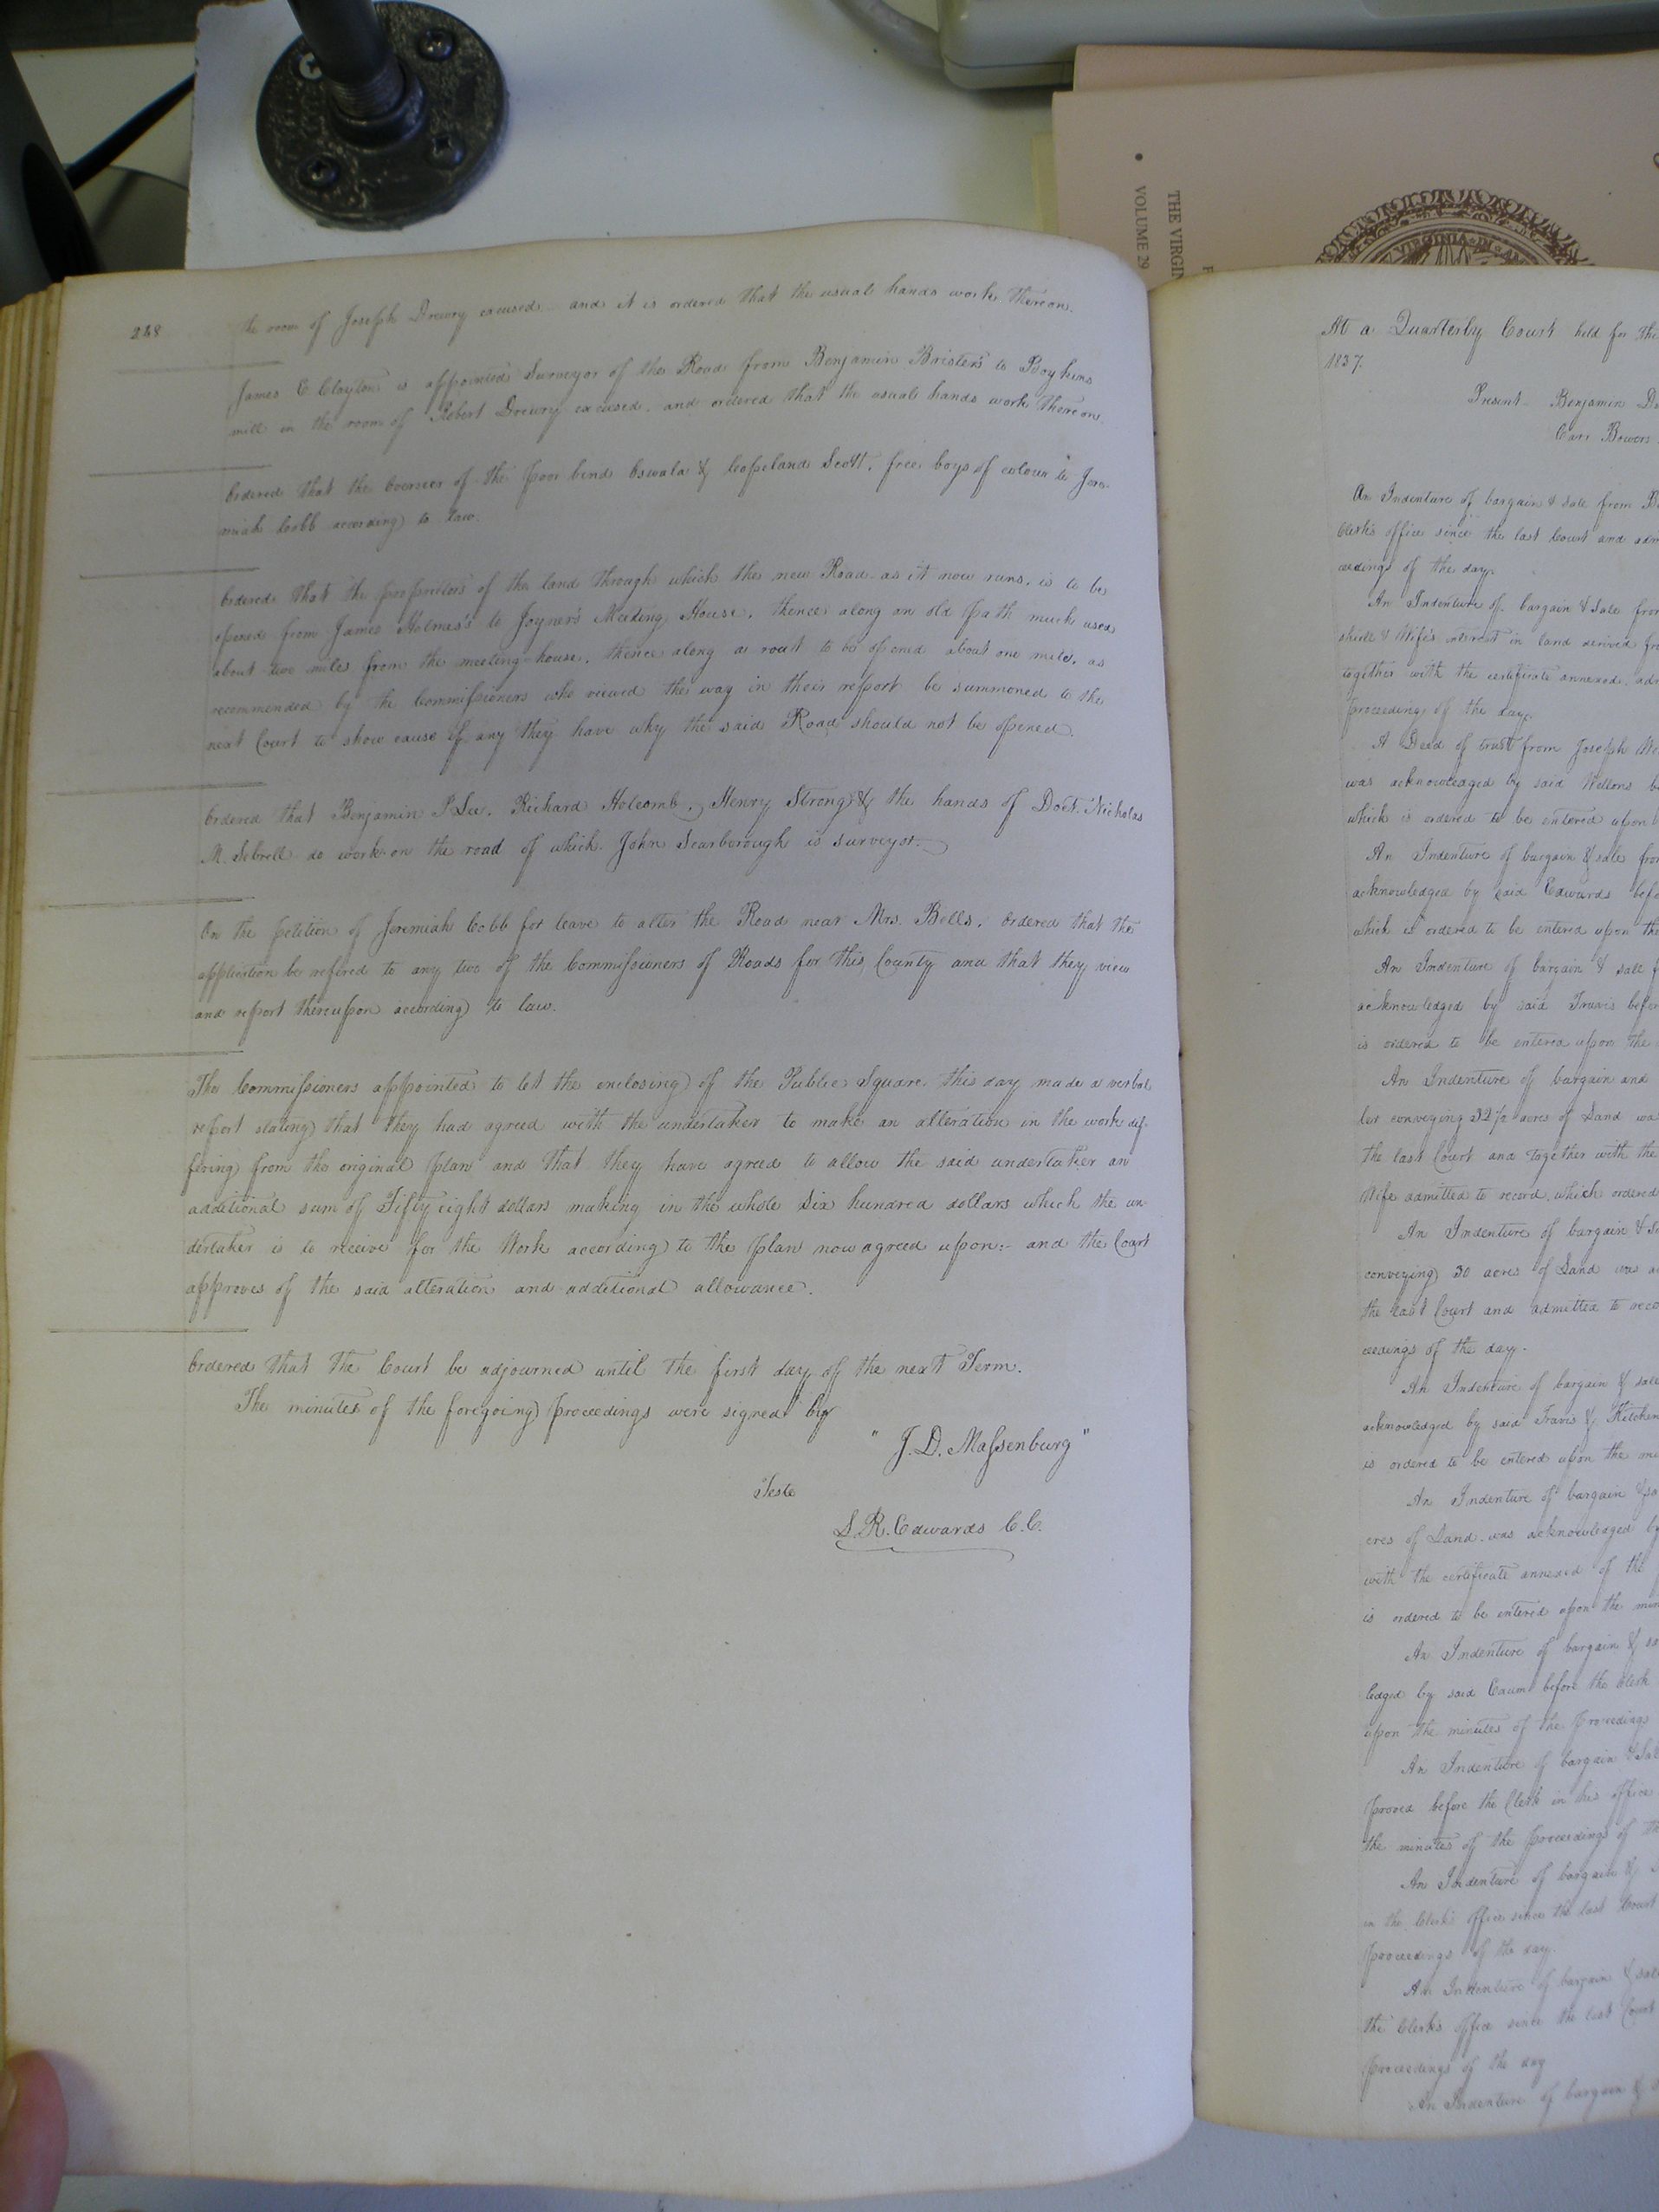 THE VIRGIN
VOLUME 29
VIRGINIA IN
248
the room of Joseph Drewry excused and it is ordered that the usual hands work thereon.
James E Clayton is appointed Surveyor of the Road from Benjamin Brister's to Boykins
mill in the room of Robert Drewry excused, and ordered that the usual hands work thereon
Ordered that the Overseer of the poor bind Oswald & Copeland Scott, free boys of colour to Jere-
miah Cobb according to law.
Ordered that the proprietors of the land through which the new Road as it now runs, is to be
opened from James Holmes's to Joyner's Meeting House, thence along an old path much used
about two miles from the meeting house, thence along a rout to be opened about one mile, as
recommended by the Commissioners who viewed the way in their report be summoned to the
next Court to show cause if any they have why the said Road should not be opened.
Ordered that Benjamin P Lee, Richard Holcomb, Henry Strong & the hands of Doct. Nicholas
M. Sebrell do work on the road of which John Scarborough is surveyor.
On the petition of Jeremiah Cobb for leave to alter the Road near Mrs. Bells, Ordered that the
application be refered to any two of the Commissioners of Roads for this County and that they view
and report thereupon according to law.
The Commissioners appointed to let the enclosing of the Public Square, this day made a verbal
report stating that they had agreed with the undertaker to make an alteration in the work dif-
fering from the original plan and that they have agreed to allow the said undertaker an
additional sum of Fifty eight dollars making in the whole Six hundred dollars which the un-
dertaker is to receive for the Work according to the plan now agreed upon:- and the Court
approves of the said alteration and additional allowance.
Ordered that the Court be adjourned until the first day of the next Term.
The minutes of the foregoing proceedings were signed by
" J. D. Massenburg "
Teste
L. R. Edwards C. C.
At a Quarterly Court held for the
1837.
Present Benjamin
Carr Bowers
An Indenture of bargain & sale from
Clerk's office since the last Court and
ceedings of the day.
An Indenture of bargain & sale from
& Wife's interest in land derived
together with the certificate annexed,
proceedings of the day.
A Deed of trust from Joseph
was acknowledged by said Wellons
which is ordered to be entered upon
An Indenture of bargain & sale from
acknowledged by said Edwards
which is ordered to be entered upon the
An Indenture of bargain & sale
acknowledged by said Travis
is ordered to be entered upon the
An Indenture of bargain and
conveying acres of Land was
the last Court and together with the
Wife admitted to record, which ordered
An Indenture of bargain &
conveying 30 acres of Land was
the last Court and admitted to
ceedings of the day.
An Indenture of bargain & sale
acknowledged by said Travis &
is ordered to be entered upon the
An Indenture of bargain &
cres of Land was acknowledged
with the certificate annexed of the
is ordered to be entered upon the
An Indenture of bargain &
ledged by said Exum before the Clerk
upon the minutes of the proceedings
An Indenture of bargain &
proved before the Clerk in his office
the minutes of the proceedings of
An Indenture of bargain &
in the Clerk's office since the last Court
proceedings of the day.
An Indenture of bargain & sale
the Clerk's office since the last Court
proceedings of the day
An Indenture of bargain &